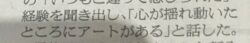 経験を聞き出し、「心が揺れ動いた
ところにアートがある」と話した。